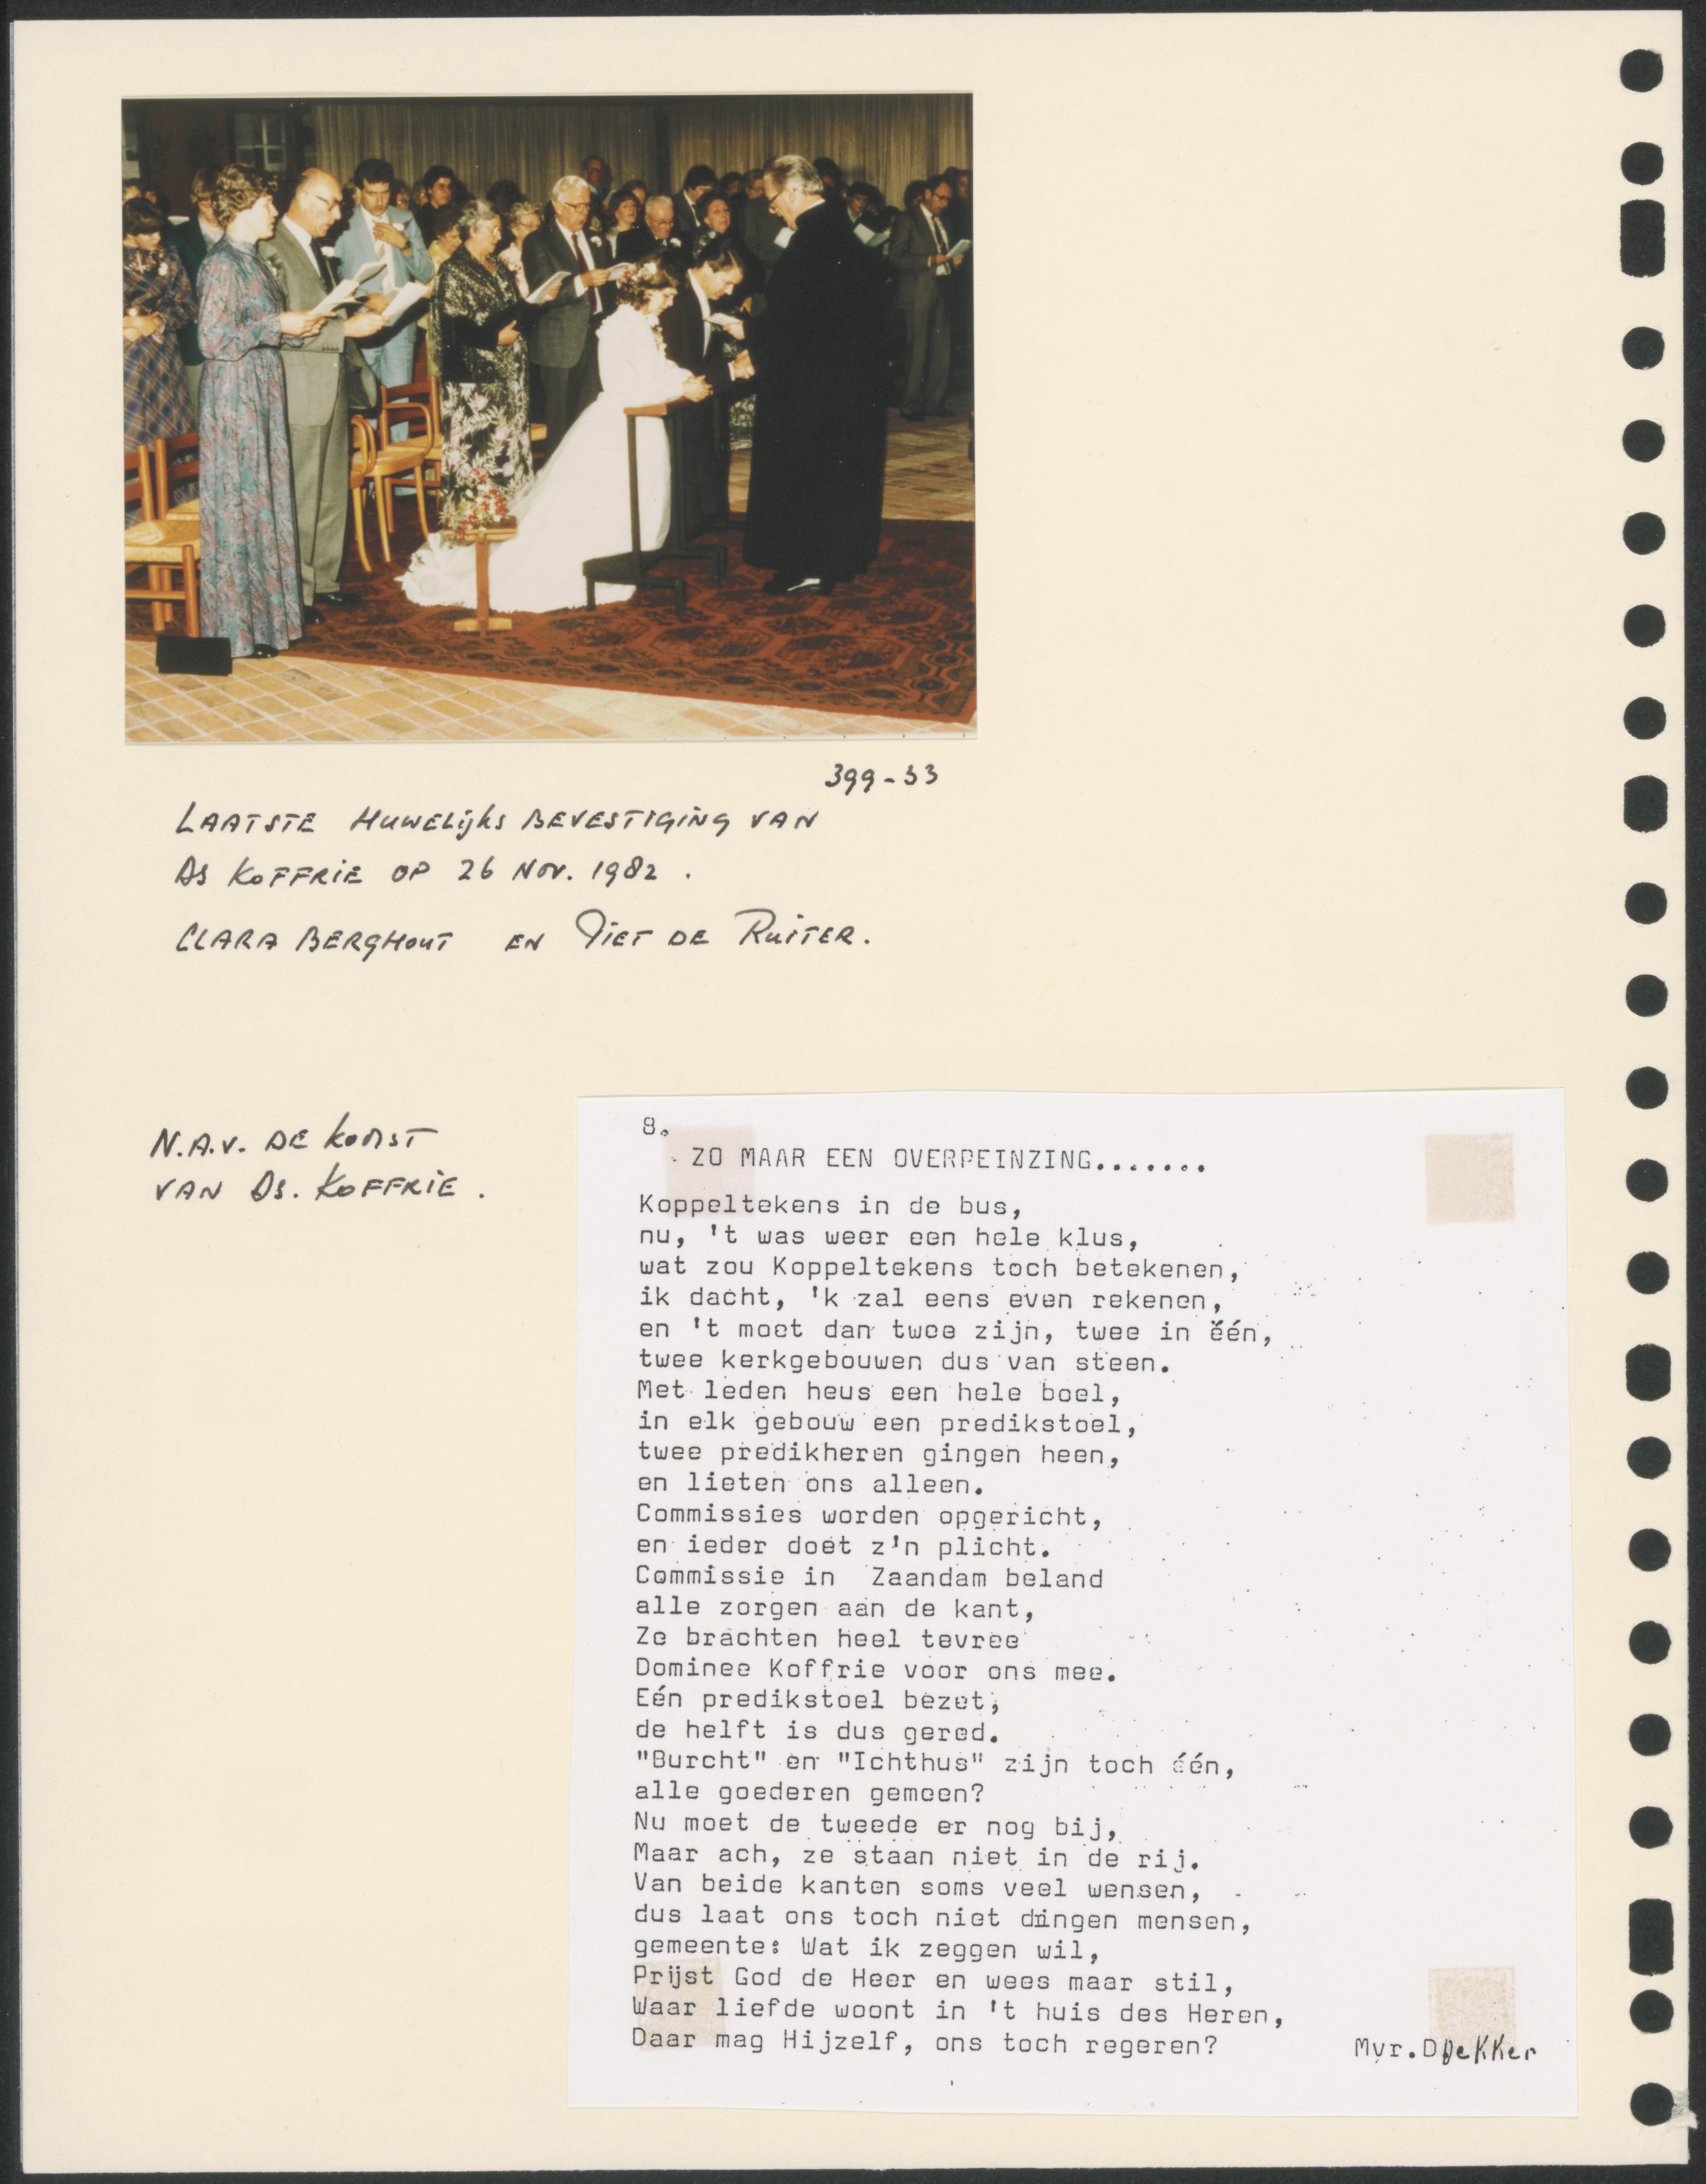 399-33
LAATSTE HUWELijks BEVESTIGING VAN
DS KOFFRIE OP 26 NOV. 1982.
CLARA BERGHOUT EN PIET DE RUITER.
N.A.V. DE KOMST
VAN DS. KOFFRIE.
8.
ZO MAAR EEN OVERPEINZING........
Koppeltekens in de bus,
nu, 't was weer een hele klus,
wat zou Koppeltekens toch betekenen,
ik dacht, 'k zal eens even rekenen,
en 't moet dan twee zijn, twee in één,
twee kerkgebouwen dus van steen.
Met leden heus een hele boel,
in elk gebouw een predikstoel,
twee predikheren gingen heen,
en lieten ons alleen.
Commissies worden opgericht,
en ieder doet z'n plicht.
Commissie in Zaandam beland
alle zorgen aan de kant,
Ze brachten heel tevree
Dominee Koffrie voor ons mee.
Eén predikstoel bezet,
de helft is dus gered.
"Burcht" en "Ichthus" zijn toch één,
alle goederen gemeen?
Nu moet de tweede er nog bij,
Maar ach, ze staan niet in de rij.
Van beide kanten soms veel wensen,
dus laat ons toch niet dringen mensen,
gemeente: Wat ik zeggen wil,
Prijst God de Heer en wees maar stil,
Waar liefde woont in 't huis des Heren,
Daar mag Hijzelf, ons toch regeren?
Mvr. D Dekker